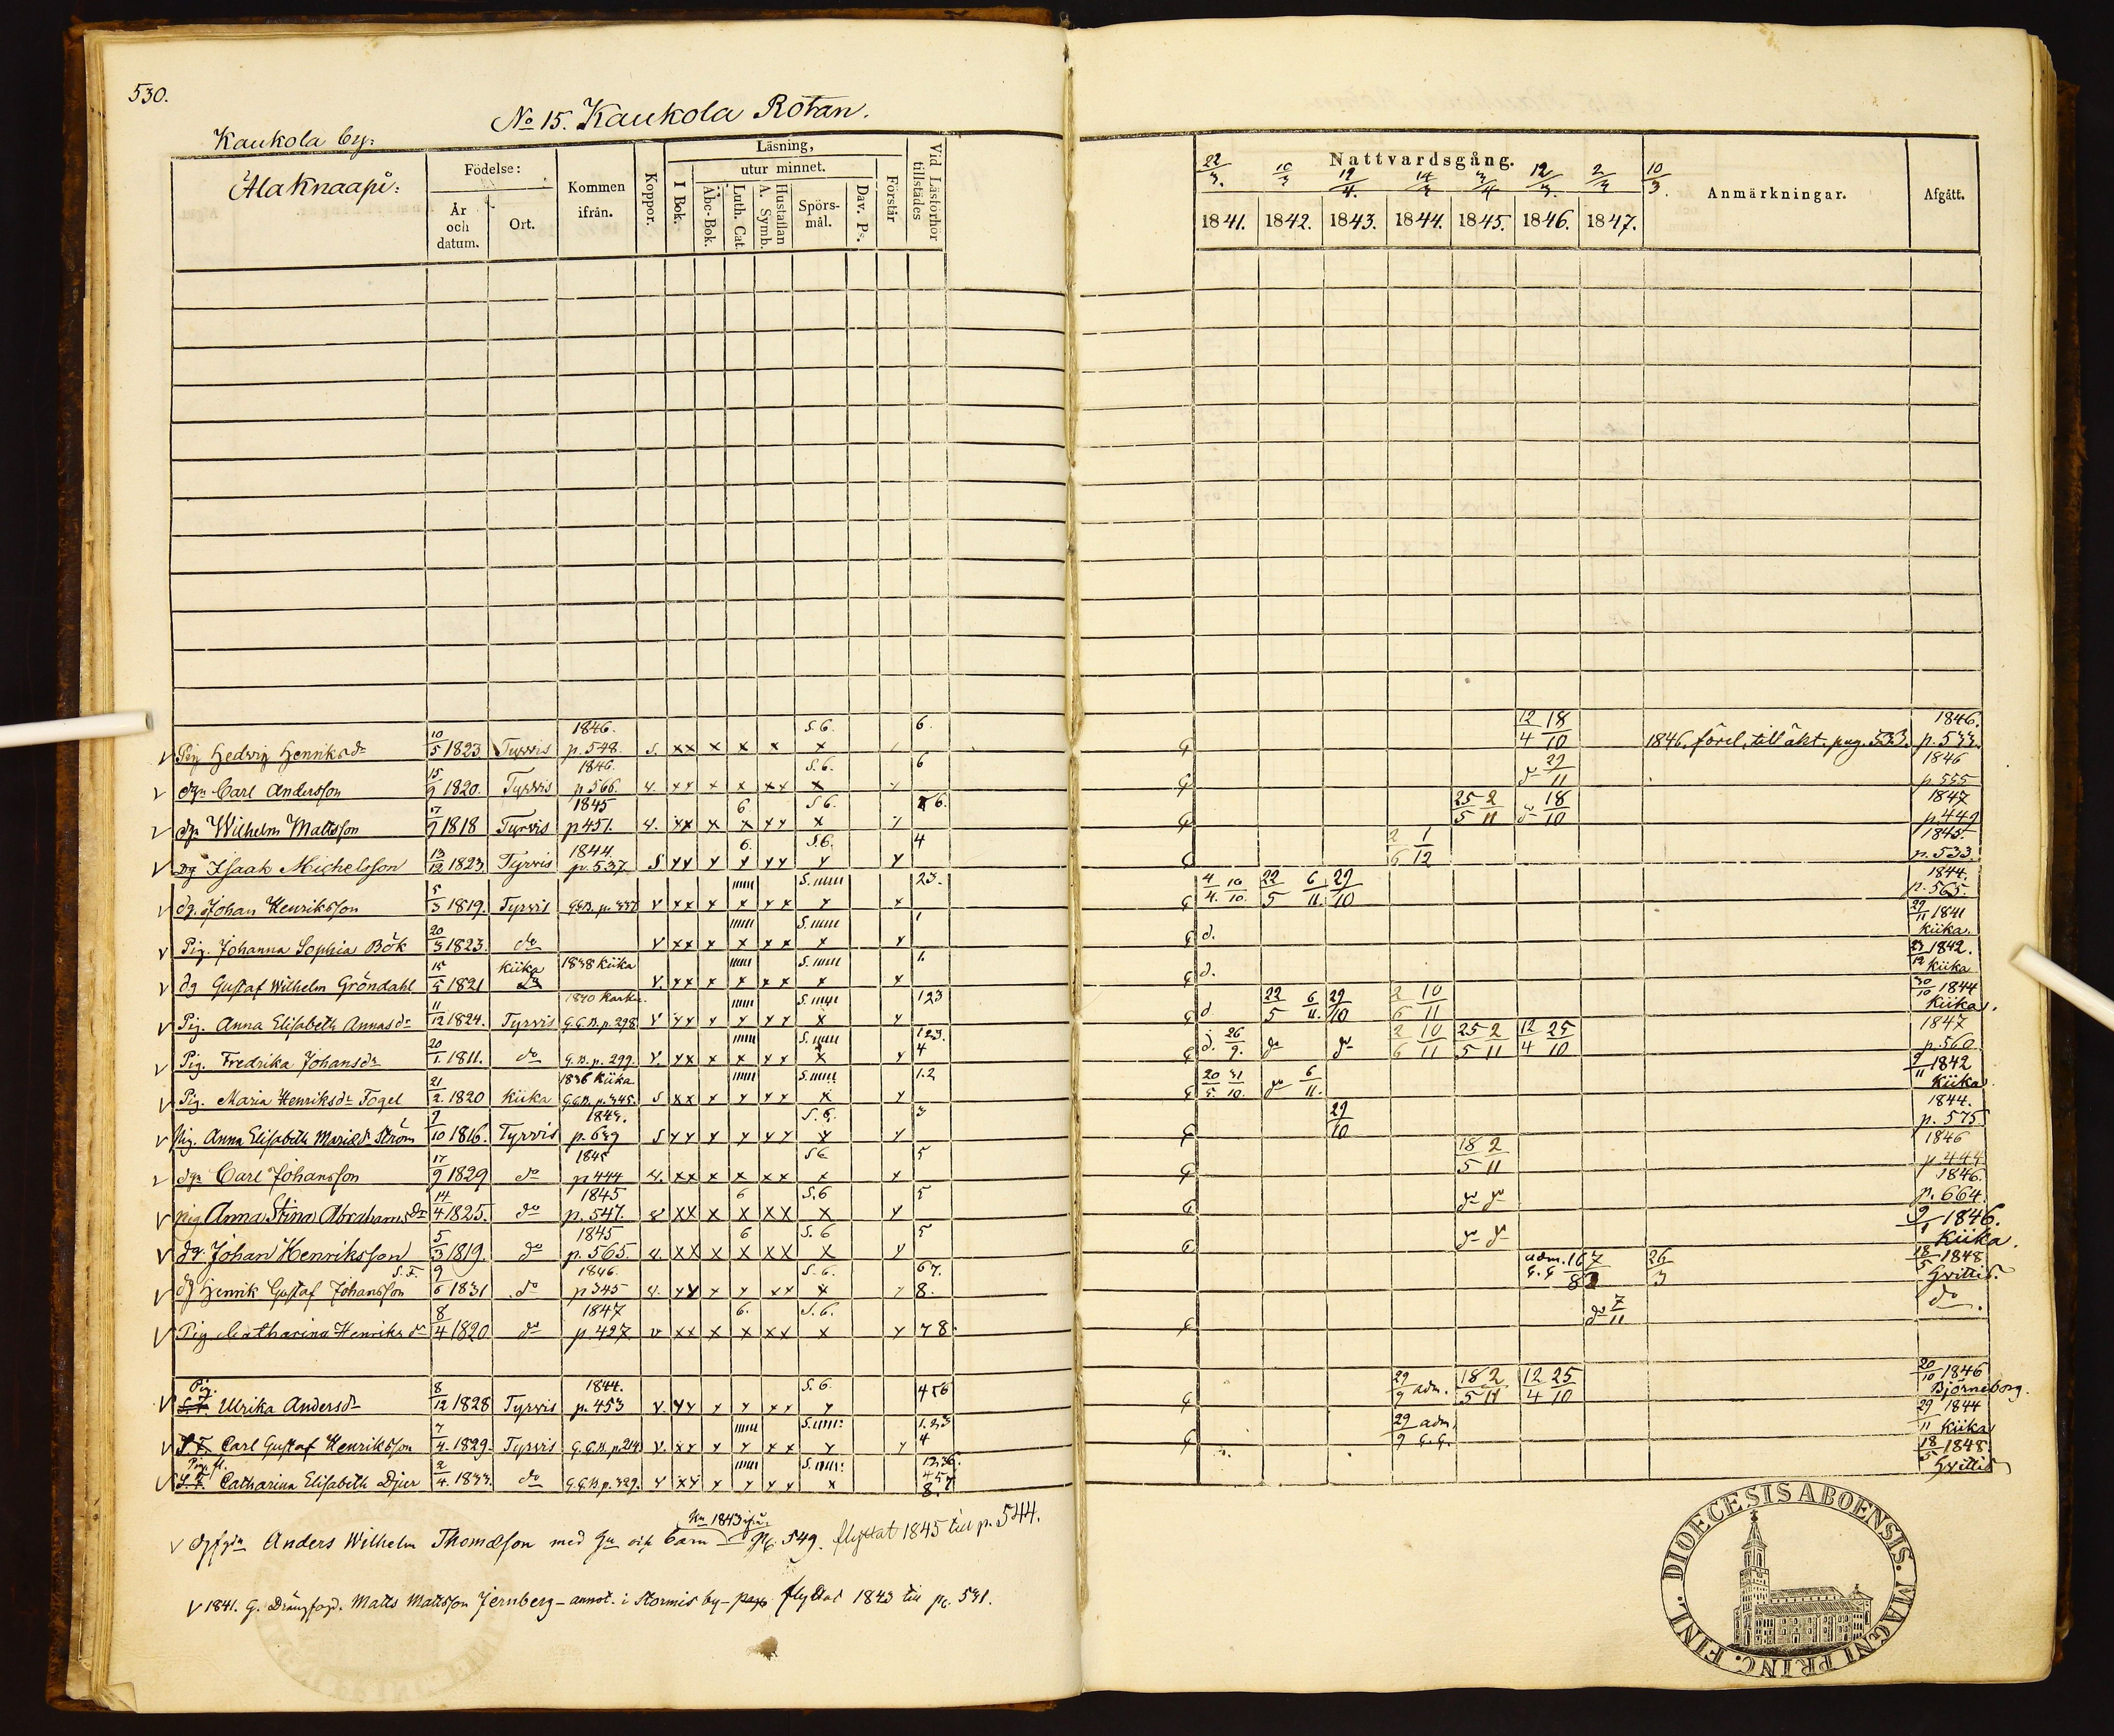 530.
No 15. Kaukola Rotan.
Kaukola by:
Alaknaapi:
Födelse: År och datum. Ort. Kommen ifrån. Koppor. Läsning, I Bok. utur minnet. Abc-Bok. Luth. Cat. A. Symb. Hustaflan Spörs-mål. Dav. Ps. Förstår Vid Läsförhör tillstädes
Nattvardsgång. Anmärkningar. Afgått.
22/3. 10/3 19/4. 14/3 3/4 12/3. 2/3 10/3.
1841. 1842. 1843. 1844. 1845. 1846. 1847.
v Pig Hedvig Henriksdr 10/5 1823 Tyrvis 1846. p. 548. s. xx x x x S. 6. x 6. 12/4 18/10 1846. förel. till äkt. pag. 533. 1846. p. 533.
v dgn Carl Andersson 15/9 1820. Tyrvis 1846. p 566. v. xx x x xx S. 6. x 6 do 29/11 1846 p 555
v dgn Wilhelm Mattsson 17/9 1818 Tyrvis 1845 p 451. v. xx x 6. x xx S 6. x 6. 25/5 2/11 do 18/10 1847 p. 449
v dg Isaak Michelsson 13/12 1823. Tyrvis 1844. p. 537. S xx x 6. x xx S.6. x x 4 2/6 1/12 1845. p. 533.
v dg. Johan Henriksson 5/3 1819. Tyrvis G.G.B. p. 337 v xx x x xx S. x x 23. 4/4. 10/10. 22/5 6/11. 29/10 1844. p. 565.
v Pig. Johanna Sophia Bök 20/3 1823. do v xx x x xx S. x x 1 d. 29/11 1841 Kiika.
v dg Gustaf Wilhelm Gröndahl 15/5 1821 Kiika 1838 Kiika v. xx x x x x S. x x 1. d. 23/12 1842. Kiika
v Pig. Anna Elisabeth Annasdr 11/12 1824. Tyrvis 1840 Karkku. G.G.B. p. 298 v xx x x xx S. x x 123 d 22/5 6/11. 29/10 2/6 10/11 30/10 1844 Kiika.
v Pig. Fredrika Johansdr 20/1. 1811. do G.B. p. 299. v. xx x x xx S. x x 123. 4 d. 26/9. do do 2/6 10/11 25/5 2/11 12/4 25/10 1847 p. 560
v Pig. Maria Henriksdr Fogel 21/2. 1820 Kiika 1836 Kiika G.G.B. p. 345. S xx x x xx S. x x 1.2 20/5. 31/10. do 6/11. 9/11 1842 Kiika.
v Pig. Anna Elisabeth Mariædr Ström 9/10 1816. Tyrvis 1843. p. 639 S xx x x xx S. 6. x x 3 29/10 1844. p. 575
v dgn Carl Johansson 17/9 1829 do 1845 p 444 v. xx x x xx S 6 x x 5 18/5 2/11 1846 p. 444
v pig Anna Stina Abrahamsdr 14/4 1825. do 1845 p. 547. v xx x 6 x xx S. 6 x x 5 do do 1846. p. 664.
v dg. Johan Henriksson 5/3 1819. do 1845 p. 565 v. xx x 6 x xx S. 6 x x 5 do do 9/1 1846. Kiika.
v dg Henrik Gustaf Johansson S. F. 9/6 1831 do 1846. p 345 v. xx x x xx S. 6. x 67. 8. adm. 16/8 G. G 26/3 18/5 1848 Hvittis.
v Pig Catharina Henriksdr 8/4 1820 do 1847 p. 427 v xx x 6. x xx S. 6. x x 78. do 7/11 do.
v Pig. Ulrika Andersdr 8/12 1828 Tyrvis 1844. p. 453 v. xx x x xx S. 6. x 456 29/9 adm. 18/5 2/11 12/4 25/10 20/10 1846 Björneborg.
v S. F. Carl Gustaf Henriksson 7/4. 1829. Tyrvis G.G.B. p. 214 v. xx x x xx S. x x 1.2.3 4 29/9 adm. G.G. 29/11 1844 Kiika
v Pig. fl. Catharina Elisabeth Djer 2/4. 1833. do G.G.B. p. 329. v xx x x xx S. x 18/5 1848. Hvittis
v Anders Wilhelm Thomasson med Hu och barn 1843 ifrån pg. 549. flyttat 1845 till p. 544.
v 1841. G. Drängfogd. Matts Mattsson Jernberg – annot. i Stormis by – flyttat 1843 till pg. 531.
FINL. DIOECESIS ABOENSIS. MAGNI PRINC.